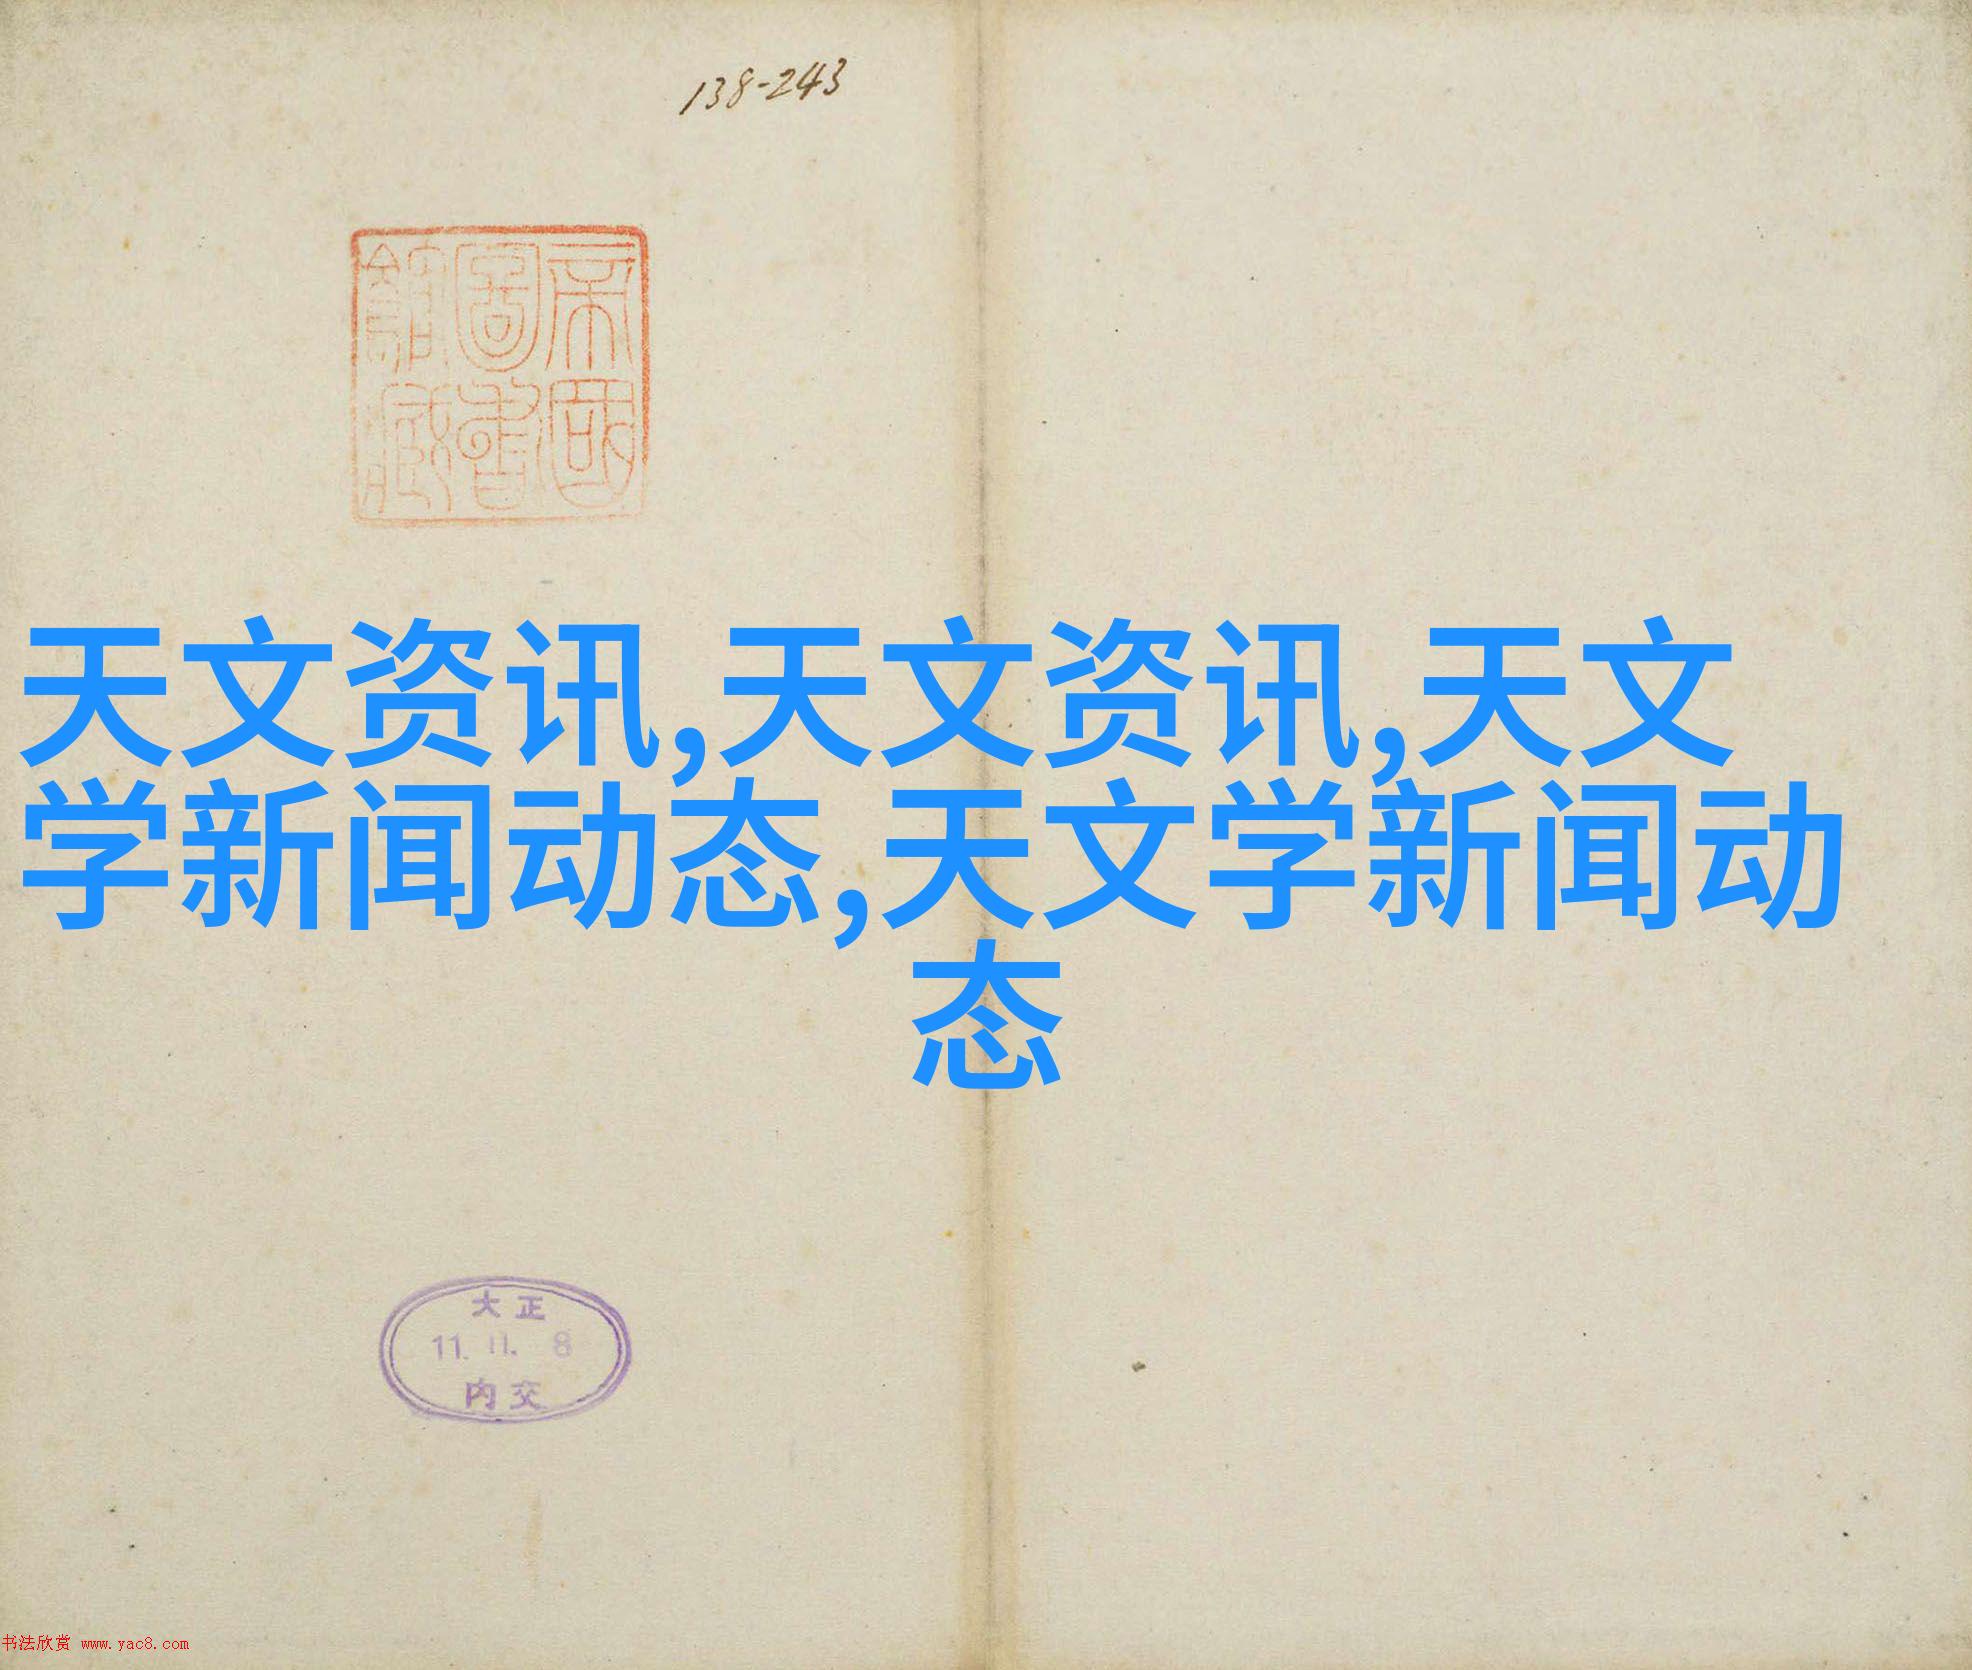 138-243
帝國
圖書
館藏
天文资讯,天文资讯,天文
学新闻动态,天文学新闻动
态
大正
11.11.8
内交
书法欣赏 www.yac8.com